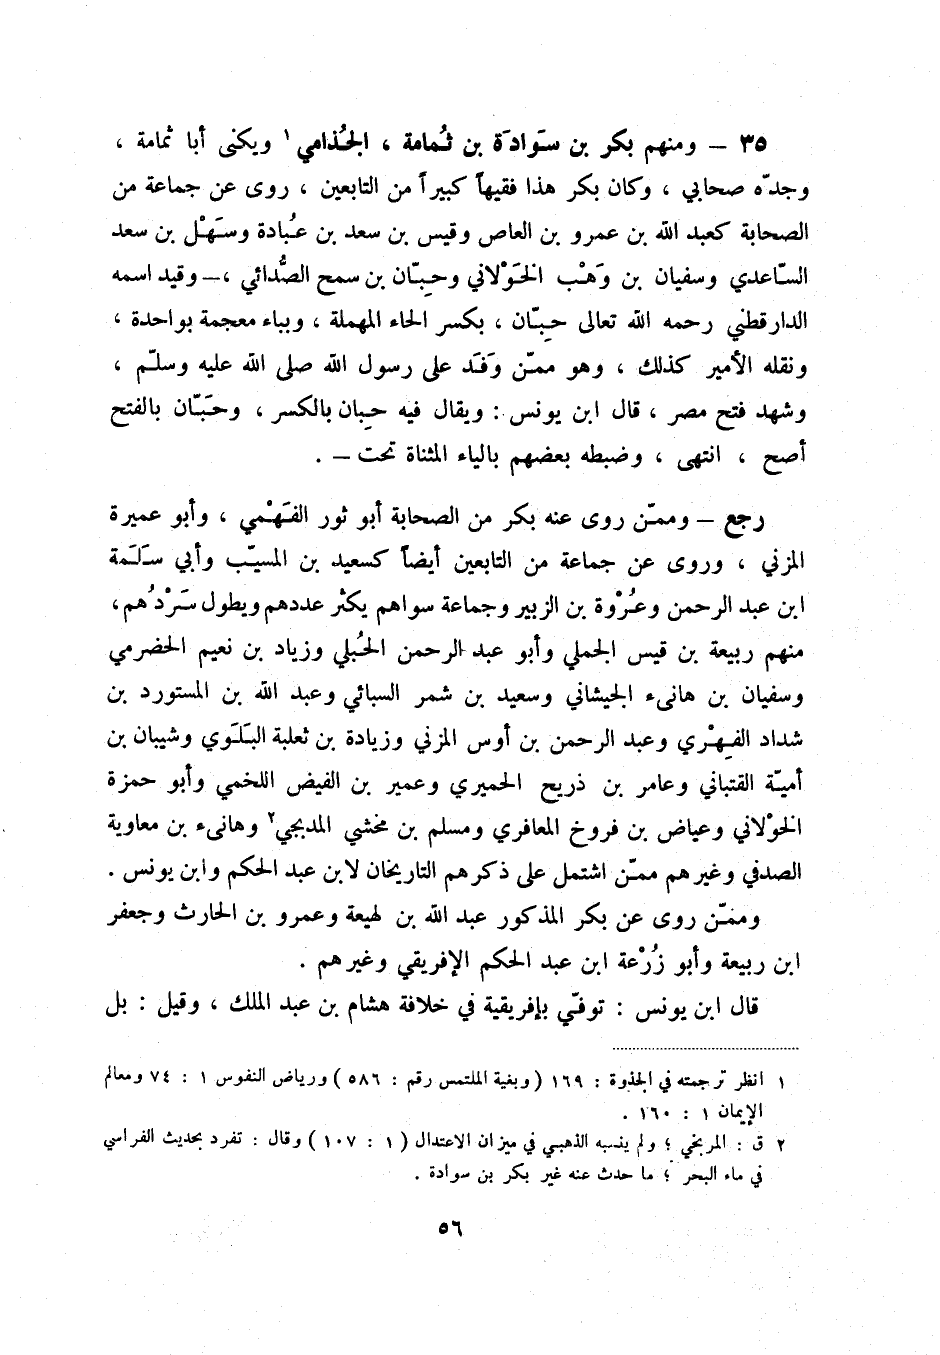 ٣٥ – ومنهم بكر بن سَوادَة بن ثُمامة ، الجُذامي ١ ويكنى أبا ثمامة ،
وجدّه صحابي ، وكان بكر هذا فقيهاً كبيراً من التابعين ، روى عن جماعة من
الصحابة كعبد الله بن عمرو بن العاص وقيس بن سعد بن عُبادة وسَهْل بن سعد
السّاعدي وسفيان بن وَهْب الخَوْلاني وحِبّان بن سمح الصُّدائي ،– وقيد اسمه
الدارقطني رحمه الله تعالى حِبّان ، بكسر الحاء المهملة ، وباء معجمة بواحدة ،
ونقله الأمير كذلك ، وهو ممّن وَفَد على رسول الله صلى الله عليه وسلّم ،
وشهد فتح مصر ، قال ابن يونس : ويقال فيه حِبان بالكسر ، وحَبّان بالفتح
أصح ، انتهى ، وضبطه بعضهم بالياء المثناة تحت – .
رجع – وممّن روى عنه بكر من الصحابة أبو ثور الفَهْمي ، وأبو عميرة
المزني ، وروى عن جماعة من التابعين أيضاً كسعيد بن المسيّب وأبي سَلَمة
ابن عبد الرحمن وعُرْوة بن الزبير وجماعة سواهم يكثر عددهم ويطول سَرْدُهم،
منهم ربيعة بن قيس الجملي وأبو عبد الرحمن الحُبلي وزياد بن نعيم الحضرمي
وسفيان بن هانىء الجيشاني وسعيد بن شمر السبائي وعبد الله بن المستورد بن
شداد الفِهْري وعبد الرحمن بن أوس المزني وزيادة بن ثعلبة البَلَوي وشيبان بن
أميّة القتباني وعامر بن ذريح الحميري وعمير بن الفيض اللخمي وأبو حمزة
الخَوْلاني وعياض بن فروخ المعافري ومسلم بن مخشي المدلجي ٢ وهانىء بن معاوية
الصدفي وغيرهم ممّن اشتمل على ذكرهم التاريخان لابن عبد الحكم وابن يونس .
وممّن روى عن بكر المذكور عبد الله بن لهيعة وعمرو بن الحارث وجعفر
ابن ربيعة وأبو زُرْعة ابن عبد الحكم الإفريقي وغيرهم .
قال ابن يونس : توفّي بإفريقية في خلافة هشام بن عبد الملك ، وقيل : بل
١ انظر ترجمته في الجذوة : ١٦٩ (وبغية الملتمس رقم : ٥٨٦ ) ورياض النفوس ١ : ٧٤ ومعالم
الإيمان ١ : ١٦٠ .
٢ ق : المريخي ؛ ولم ينسبه الذهبي في ميزان الاعتدال ( ١ : ١٠٧ ) وقال : تفرد بحديث الفراسي
في ماء البحر ؛ ما حدث عنه غير بكر بن سوادة .
٥٦